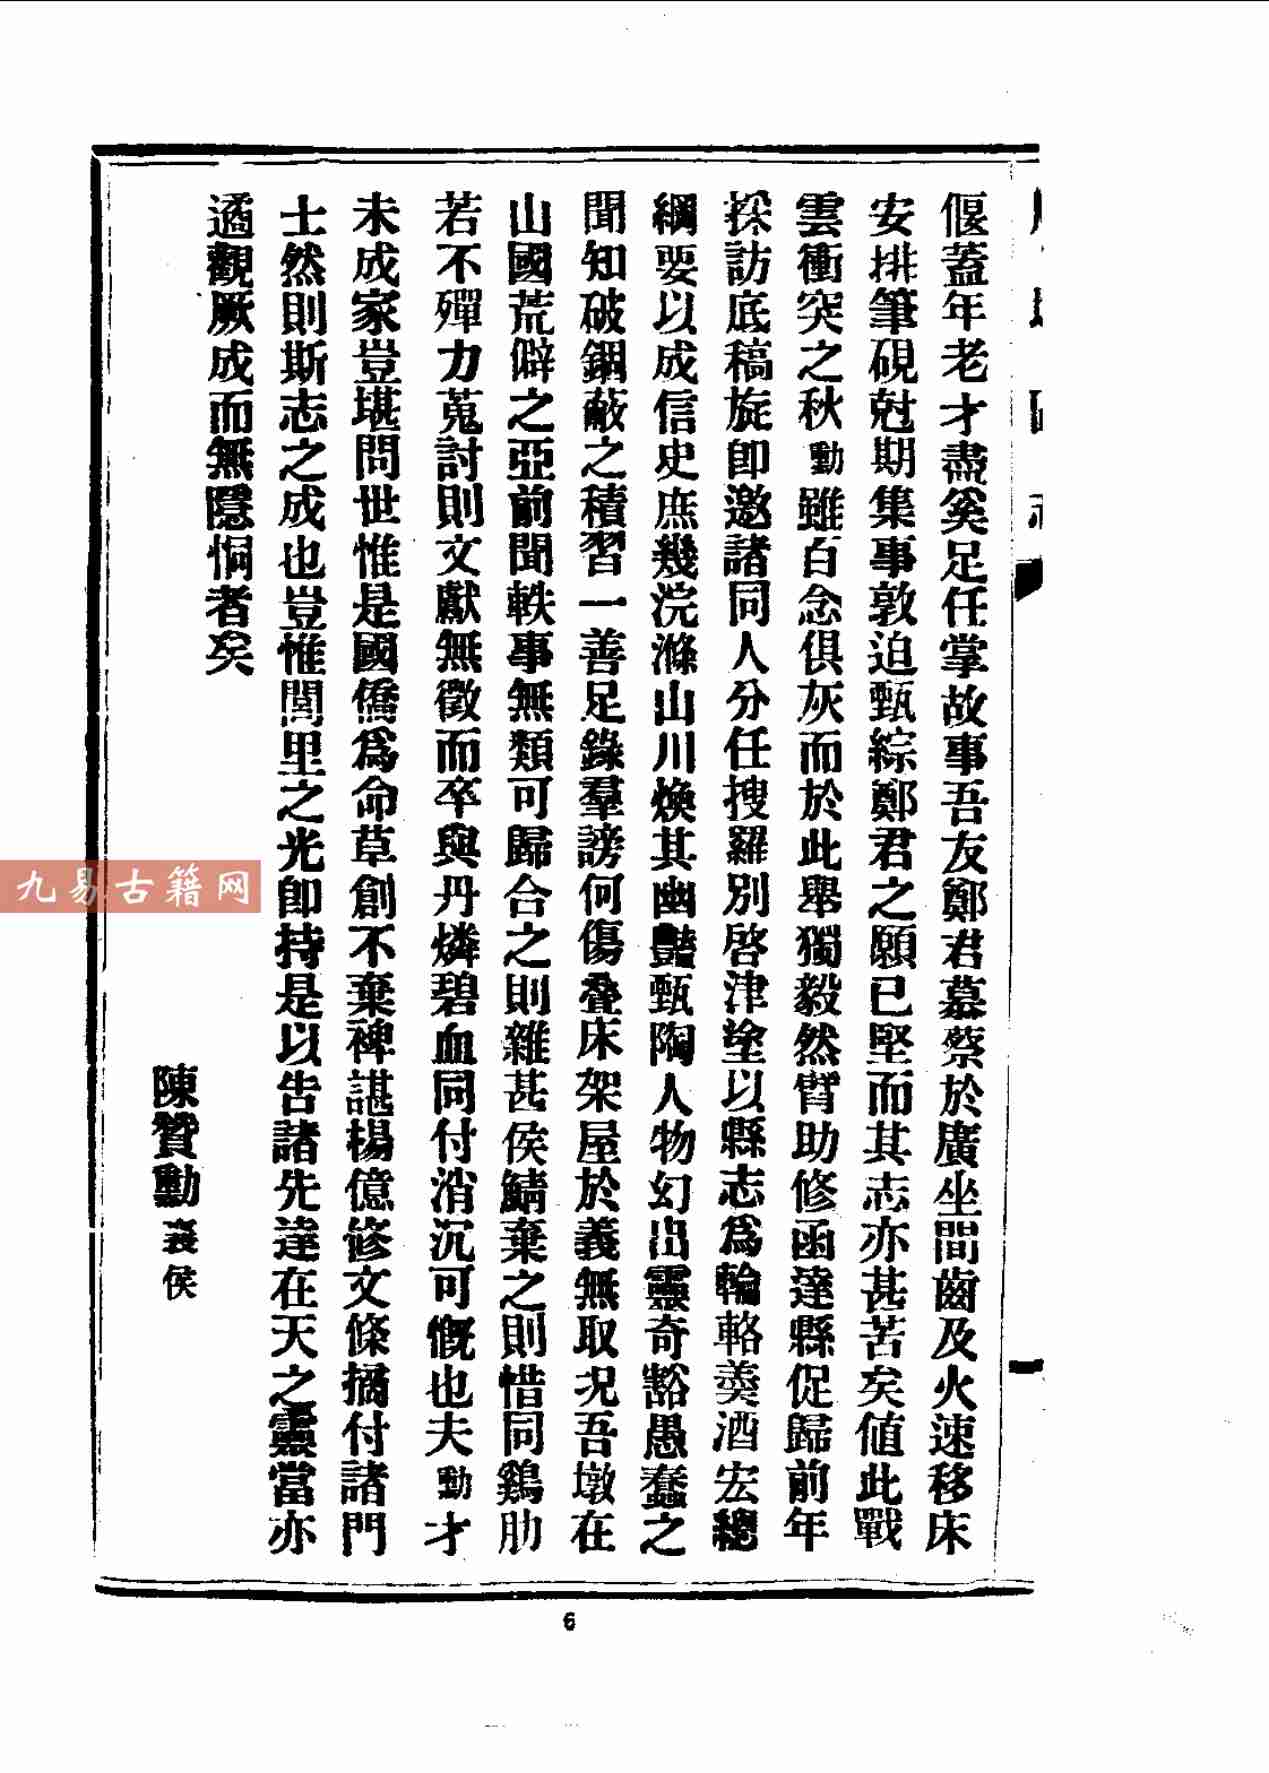 偃蓋年老才盡奚足任掌故事吾友鄭君慕蔡於廣坐間齒及火速移床
安排筆硯尅期集事敦迫甄綜鄭君之願已堅而其志亦甚苦矣値此戰
雲衝突之秋勳雖百念俱灰而於此舉獨毅然臂助修函達縣促歸前年
採訪底稿旋卽邀諸同人分任搜羅別啓津塗以縣志爲輪輅羮酒宏總
綱要以成信史庶幾浣滌山川煥其幽豔甄陶人物幻出靈奇豁愚蠢之
聞知破錮蔽之積習一善足錄羣謗何傷疊床架屋於義無取況吾墩在
山國荒僻之亞前聞軼事無類可歸合之則雜甚侯鯖棄之則惜同鷄肋
若不殫力蒐討則文獻無徵而卒與丹燐碧血同付消沉可慨也夫勳才
未成家豈堪問世惟是國僑爲命草創不棄裨諶楊億修文條摘付諸門
士然則斯志之成也豈惟閭里之光卽持是以告諸先達在天之靈當亦
遹觀厥成而無隱恫者矣
陳贊勳 侯
6
九易古籍网